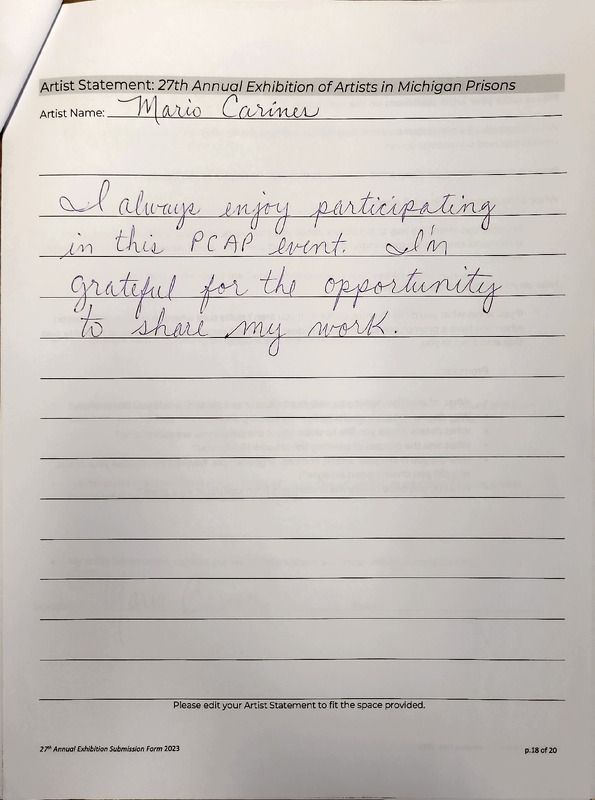 Artist Statement: 27th Annual Exhibition of Artists in Michigan Prisons
Artist Name: Mario Carines
I always enjoy participating
in this PCAP event. I'm
grateful for the opportunity
to share my work.
Please edit your Artist Statement to fit the space provided.
27th Annual Exhibition Submission Form 2023
p.18 of 20